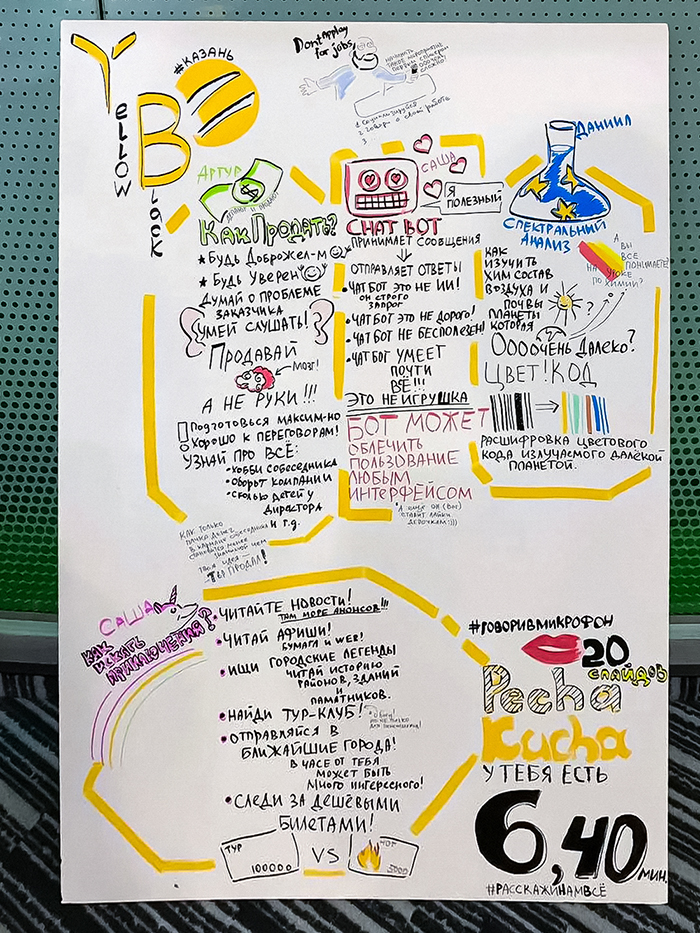 Yellow
Black
#КАЗАНЬ
Dont Apploy
for jobs
НАЧИНАТЬ
ТАКОЕ МЕРОПРИЯТИЕ
ПЕРВЫМ СПИКЕРОМ
ОООЧЕНЬ
СЛОЖНО!
АРТУР
КАК ПРОДАТЬ?
★ БУДЬ ДОБРОЖЕЛ-М
★ БУДЬ УВЕРЕН
ДУМАЙ О ПРОБЛЕМЕ
ЗАКАЗЧИКА
УМЕЙ СЛУШАТЬ!
ПРОДАВАЙ
МОЗГ!
А НЕ РУКИ!!!
ПОДГОТОВЬСЯ МАКСИМ-НО
ХОРОШО К ПЕРЕГОВОРАМ!
УЗНАЙ ПРО ВСЁ:
• ХОББИ СОБЕСЕДНИКА
• ОБОРОТ КОМПАНИИ
• СКОЛЬКО ДЕТЕЙ У
ДИРЕКТОРА
И Т.Д.
КАК ТОЛЬКО
ПАЧКА ДЕНЕГ
В КАРМАНЕ СОБЕСЕДНИКА
СТАНОВИТСЯ МЕНЕЕ
ЗНАЧИМОЙ ЧЕМ
ТВОЯ ИДЕЯ —
ТЫ ПРОДАЛ!
САША
Я
ПОЛЕЗНЫЙ
CHAT BOT
ПРИНИМАЕТ СООБЩЕНИЯ
ОТПРАВЛЯЕТ ОТВЕТЫ
• ЧАТ БОТ ЭТО НЕ ИИ!
ОН СТРОГО
ЗАПРОГ
• ЧАТ БОТ ЭТО НЕ ДОРОГО!
• ЧАТ БОТ НЕ БЕСПОЛЕЗЕН!
• ЧАТ БОТ УМЕЕТ
ПОЧТИ
ВСЁ!!!
ЭТО НЕ ИГРУШКА
БОТ МОЖЕТ
ОБЛЕЧИТЬ
ПОЛЬЗОВАНИЕ
ЛЮБЫМ
ИНТЕРФЕЙСОМ
*А ЕЩЕ ОН (БОТ)
СТАВИТ ЛАЙКИ
ДЕВОЧКАМ :)))
ДАНИИЛ
СПЕКТРАЛЬНИЙ
АНАЛИЗ
А
ВЫ
ВСЕ
ПОНИМАЕТЕ
НА УРОКЕ
ПО ХИМИИ?
КАК
ИЗУЧИТЬ
ХИМ СОСТАВ
ВОЗДУХА И
ПОЧВЫ
ПЛАНЕТЫ
КОТОРАЯ
?
ОоооЧЕНЬ ДАЛЕКО?
ЦВЕТ!КОД
РАСШИФРОВКА ЦВЕТОВОГО
КОДА ИЗЛУЧАЕМОГО ДАЛЁКОЙ
ПЛАНЕТОЙ.
САША
КАК
ИСКАТЬ
ПРИКЛЮЧЕНИЯ?
• ЧИТАЙТЕ НОВОСТИ!
ТАМ МОРЕ АНОНСОВ!!!
• ЧИТАЙ АФИШИ!
БУМАГА И WEB!
• ИЩИ ГОРОДСКИЕ ЛЕГЕНДЫ
ЧИТАЙ ИСТОРИЮ
РАЙОНОВ, ЗДАНИЙ
И
ПАМЯТНИКОВ.
• НАЙДИ ТУР-КЛУБ!
• ОТПРАВЛЯЙСЯ В
БЛИЖАЙШИЕ ГОРОДА!
В ЧАСЕ ОТ ТЕБЯ
МОЖЕТ БЫТЬ
МНОГО ИНТЕРЕСНОГО!
• СЛЕДИ ЗА ДЕШЁВЫМИ
БИЛЕТАМИ!
ТУР
100000
VS
ХОТ
5000
#ГОВОРИВМИКРОФОН
20
СЛАЙДОВ
Pecha
Kucha
У ТЕБЯ ЕСТЬ
6,40 МИН.
#РАССКАЖИНАМВСЁ